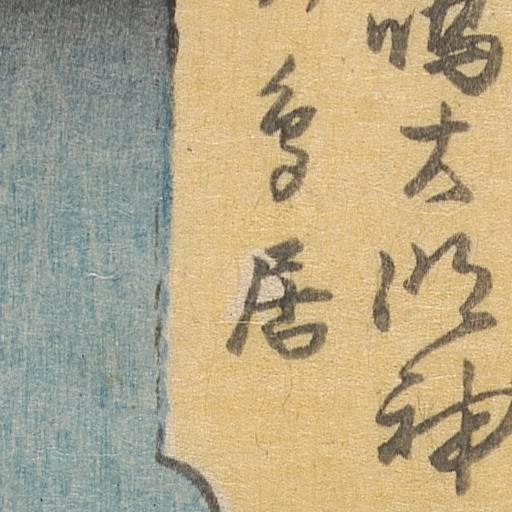 嶋大明神
鳥居